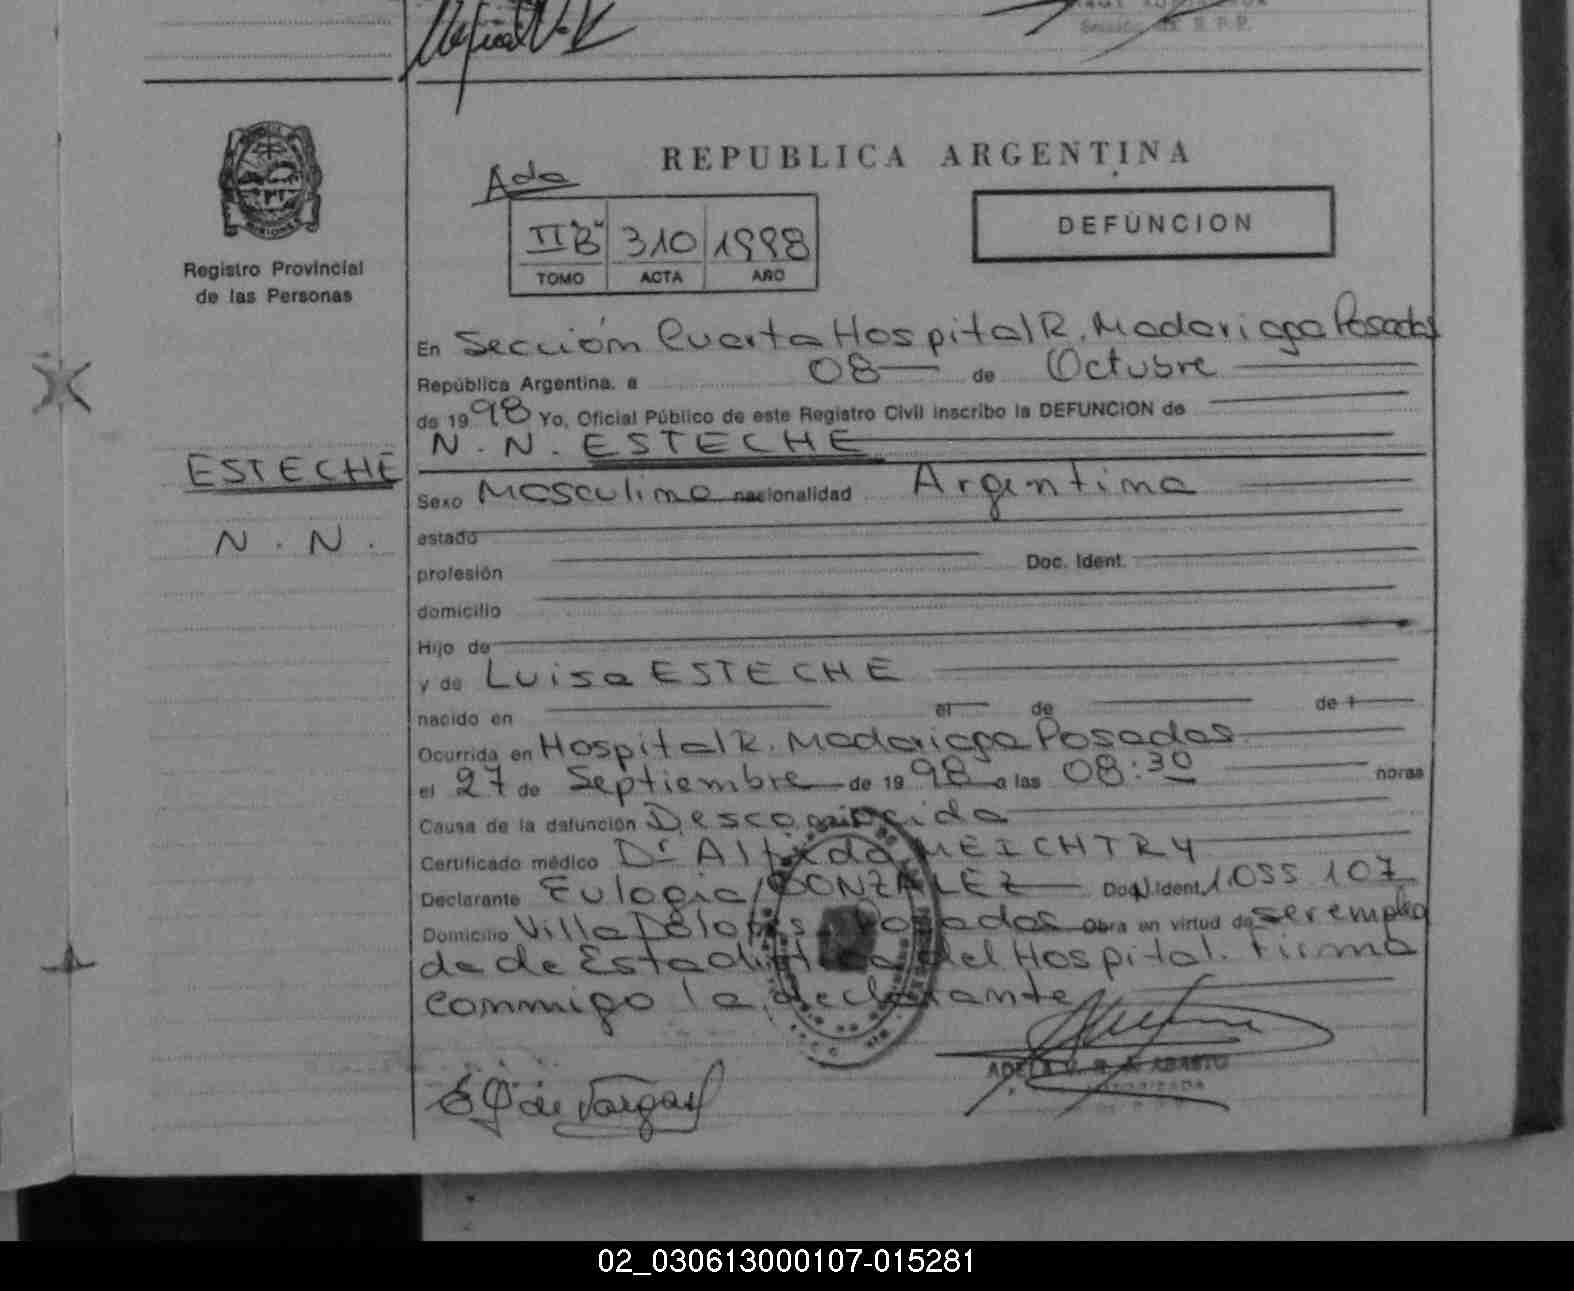 REPUBLICA ARGENTINA
Ada
II "B" 310 1998
TOMO ACTA AÑO
DEFUNCION
Registro Provincial
de las Personas
En Sección Cuarta Hospital R. Madariaga Posadas
República Argentina, a 08 de Octubre
de 1998 Yo, Oficial Público de este Registro Civil inscribo la DEFUNCION de
N. N. ESTECHE
ESTECHE
N. N.
Sexo Masculino nacionalidad Argentina
estado
profesión Doc. Ident.
domicilio
Hijo de
y de Luisa ESTECHE
nacido en el de de 1
Ocurrida en Hospital R. Madariaga Posadas
el 27 de Septiembre de 1998 a las 08:30 horas
Causa de la defunción Desconocida
Certificado médico Dr Alfredo MEICHTRY
Declarante Eulogia GONZALEZ Doc. Ident. 1.055.107
Domicilio Villa Dolores Posadas Obra en virtud de ser emplea
da de Estadística del Hospital. Firma
conmigo la declarante
E G de Vargas
02_030613000107-015281